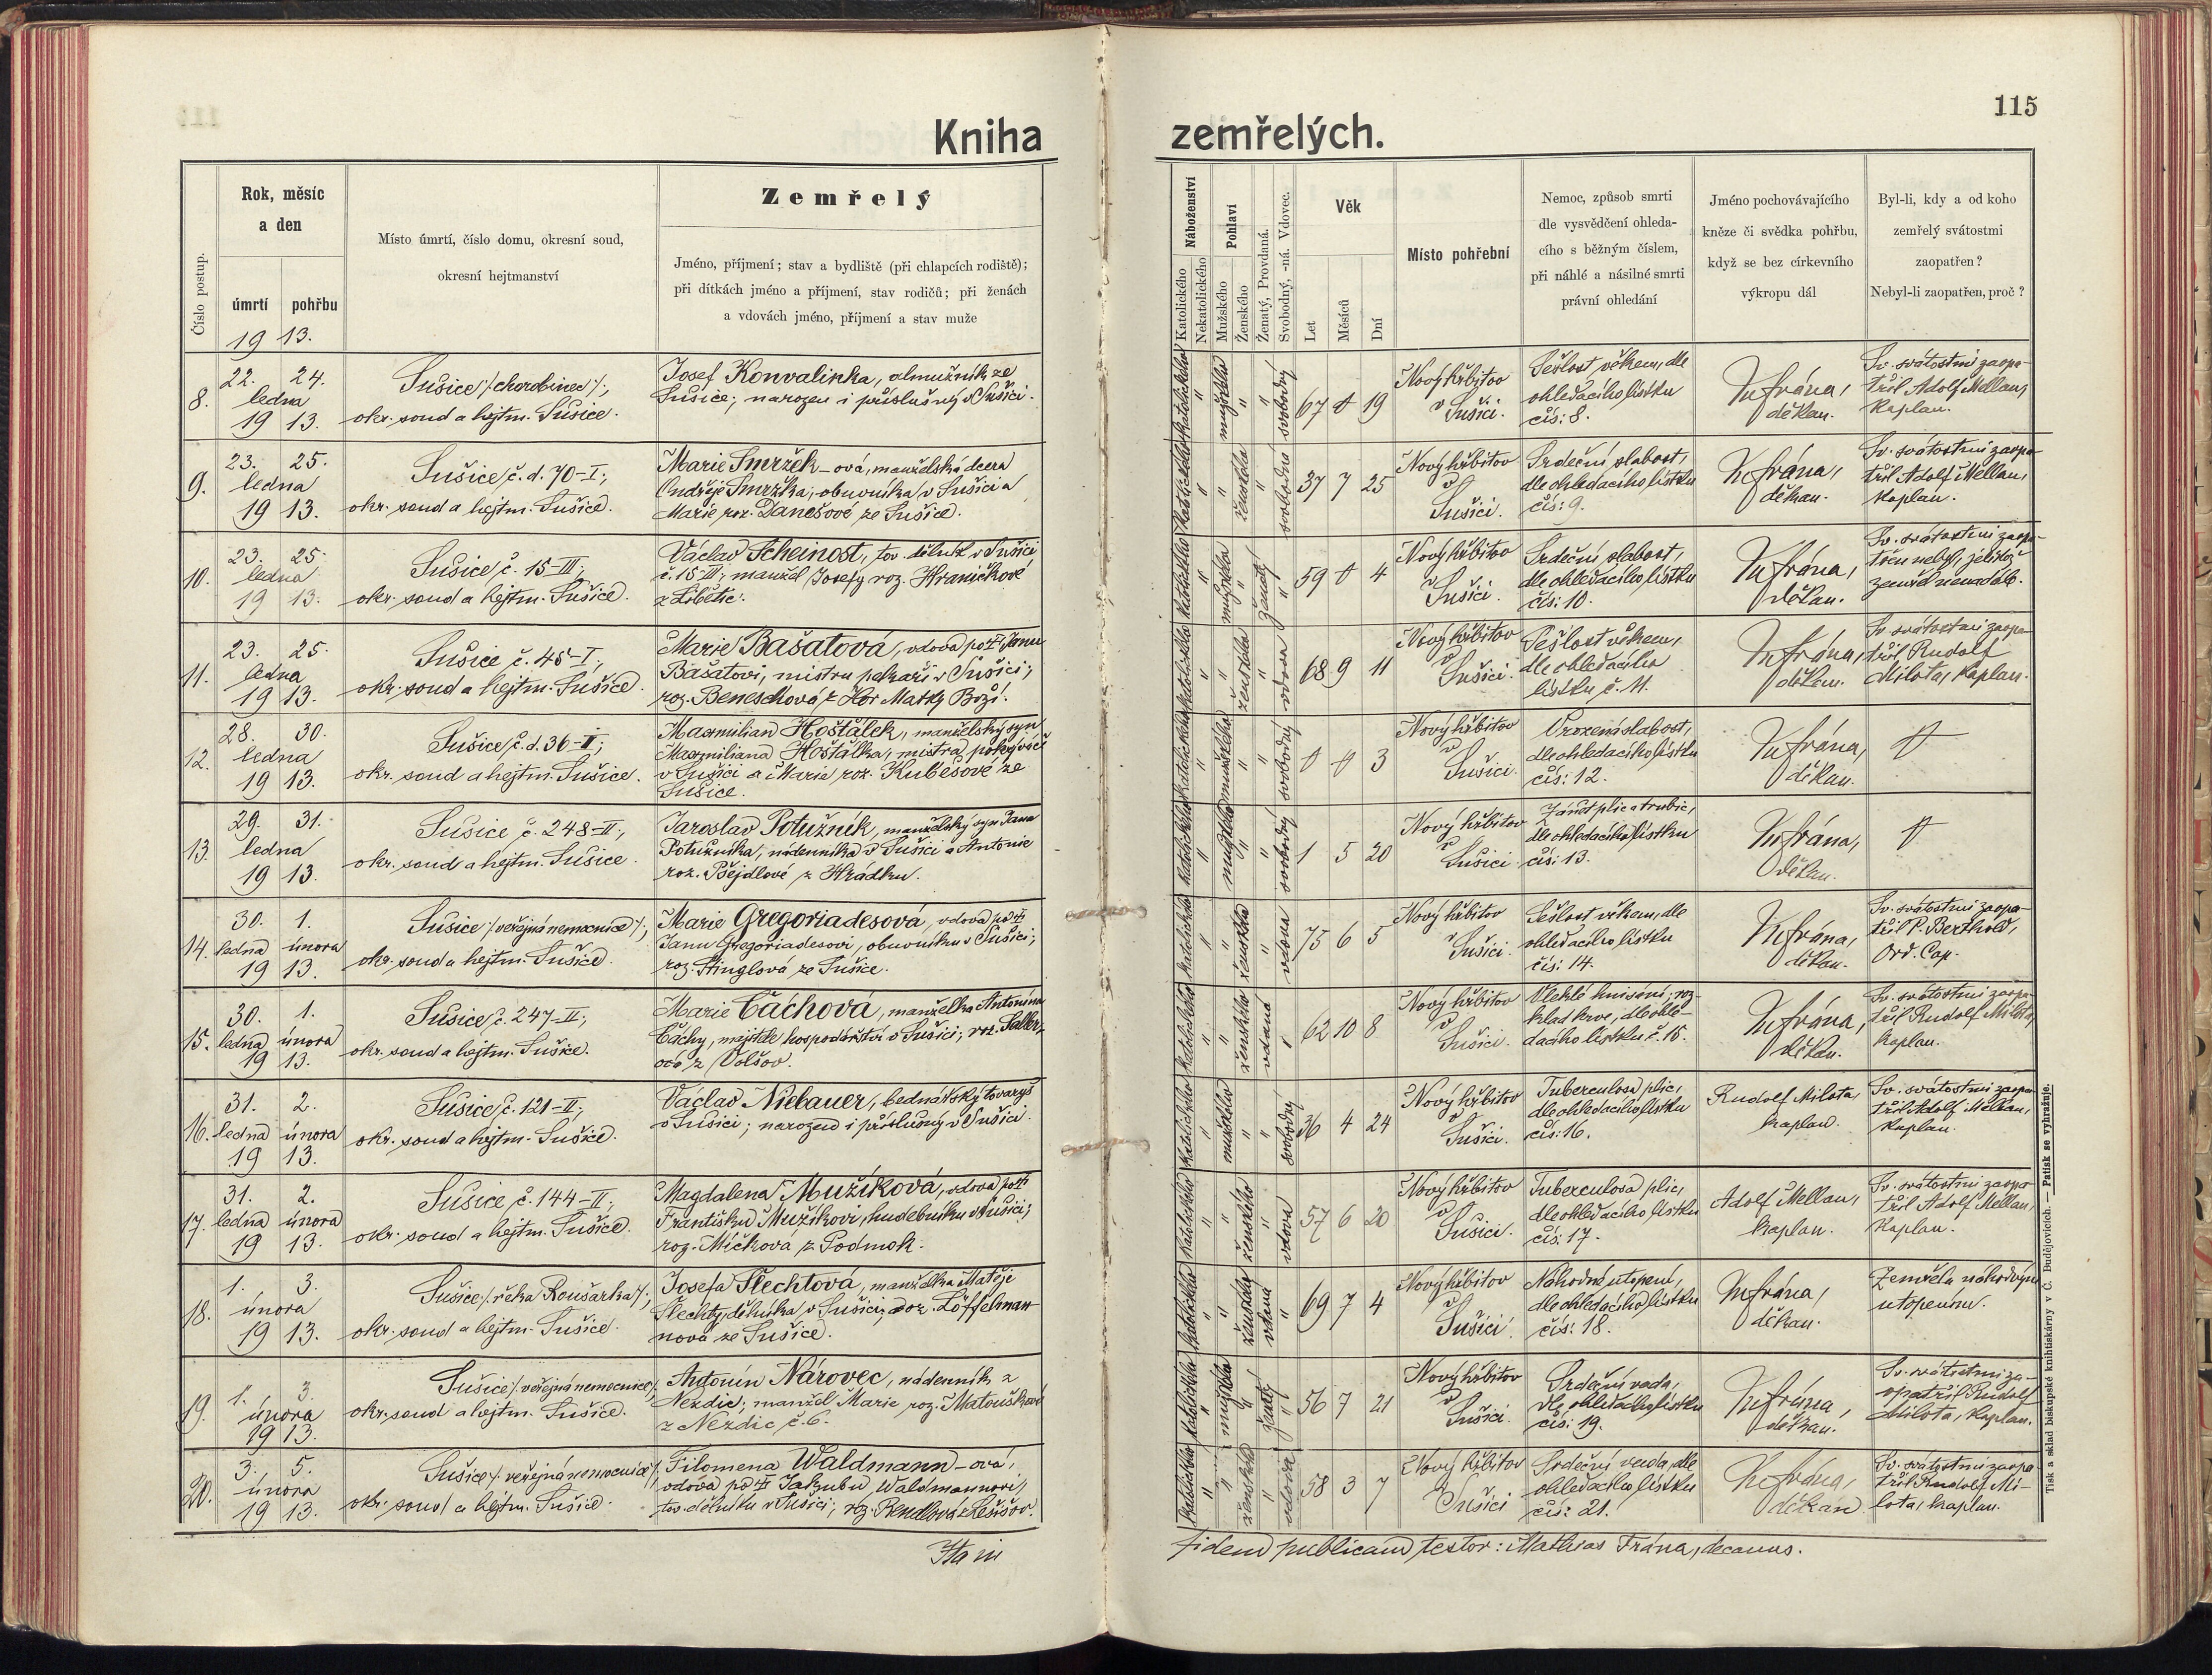 Kniha
Číslo postup.
Rok, měsíc
a den
úmrtí pohřbu
19 13.
Místo úmrtí, číslo domu, okresní soud,
okresní hejtmanství
Zemřelý
Jméno, příjmení; stav a bydliště (při chlapcích rodiště);
při dítkách jméno a příjmení, stav rodičů; při ženách
a vdovách jméno, příjmení a stav muže
8.
22. 24.
ledna
19 13.
Sušice /: chorobinec :/,
okr. soud a hejtm. Sušice.
Josef Konvalinka, almužník ze
Sušice; narozen i příslušný v Sušici.
9.
23. 25.
ledna
19 13.
Sušice č. d. 70-I;
okr. soud a hejtm. Sušice.
Marie Smržek-ová, manželská dcera
Ondřeje Smržka, obuvníka v Sušici a
Marie roz. Danešové ze Sušice.
10.
23. 25.
ledna
19 13.
Sušice č. 15-III;
okr. soud a hejtm. Sušice.
Václav Scheinost, tov. dělník v Sušici
č. 15-III; manžel Josefy roz. Hraničkové
z Libětic.
11.
23. 25.
ledna
19 13.
Sušice č. 45-I;
okr. soud a hejtm. Sušice.
Marie Bašatová, vdova po † Janu
Bašatovi, mistru pekaři v Sušici;
roz. Beneschová z Hor Matky Boží.
12.
28. 30.
ledna
19 13.
Sušice č. d. 36-II;
okr. soud a hejtm. Sušice.
Maxmilian Hoštálek, manželský syn
Maxmiliana Hoštálka, mistra
v Sušici a Marie roz. Kubešové ze
Sušice.
13.
29. 31.
ledna
19 13.
Sušice č. 248-II;
okr. soud a hejtm. Sušice.
Jaroslav Potužník, manželský syn Jana
Potužníka, nádenníka v Sušici a Antonie
roz. Bejdlové z Hrádku.
14.
30. 1.
ledna února
19 13.
Sušice /: veřejná nemocnice :/,
okr. soud a hejtm. Sušice.
Marie Gregoriadesová, vdova po †
Janu Gregoriadesovi, obuvníku v Sušici;
roz. Stinglová ze Sušice.
15.
30. 1.
ledna února
19 13.
Sušice č. 247-II;
okr. soud a hejtm. Sušice.
Marie Čáchová, manželka Antonína
Čáchy, majitele hospodářství v Sušici; roz.
z Volšov.
16.
31. 2.
ledna února
19 13.
Sušice č. 121-II;
okr. soud a hejtm. Sušice.
Václav Niebauer, bednářský tovaryš
v Sušici; narozen i příslušný v Sušici.
17.
31. 2.
ledna února
19 13.
Sušice č. 144-II;
okr. soud a hejtm. Sušice.
Magdalena Mužíková, vdova po †
Františku Mužíkovi, hudebníku v Sušici;
roz. Míčková z Podmok.
18.
1. 3.
února
19 13.
Sušice /: řeka Roušarka :/;
okr. soud a hejtm. Sušice.
Josefa Šlechtová, manželka Matěje
Šlechty, dělníka v Sušici, roz. Löffelman-
nová ze Sušice.
19.
1. 3.
února
19 13.
Sušice /: veřejná nemocnice :/
okr. soud a hejtm. Sušice.
Antonín Nárovec, nádenník z
Nezdic; manžel Marie roz. Matouškové
z Nezdic č. 6.
20.
3. 5.
února
19 13.
Sušice /: veřejná nemocnice :/
okr. soud a hejtm. Sušice.
Filomena Waldmann-ová,
vdova po † Jakubu Waldmannovi,
tov. dělníku v Sušici; roz.
115
zemřelých.
Náboženství
Katolického
Nekatolického
Pohlaví
Mužského
Ženského
Ženatý, Provdaná.
Svobodný, -ná. Vdovec.
Věk
Let
Měsíců
Dní
Místo pohřební
Nemoc, způsob smrti
dle vysvědčení ohleda-
cího s běžným číslem,
při náhlé a násilné smrti
právní ohledání
Jméno pochovávajícího
kněze či svědka pohřbu,
když se bez církevního
výkropu dál
Byl-li, kdy a od koho
zemřelý svátostmi
zaopatřen?
Nebyl-li zaopatřen, proč?
katolického mužského svobodný
67 0 19
Nový hřbitov
v
Sušici.
Sešlost věkem, dle
ohledacího lístku
čís: 8.
Frána,
děkan.
Sv. svátostmi zaopa-
třil Adolf Mellan,
kaplan.
katolického ženského svobodná
37 7 25
Nový hřbitov
v
Sušici.
Srdeční slabost,
dle ohledacího lístku
čís: 9.
Frána,
děkan.
Sv. svátostmi zaopa-
třil Adolf Mellan,
kaplan.
katolického mužského ženatý
59 0 4
Nový hřbitov
v
Sušici.
Srdeční slabost,
dle ohledacího lístku
čís: 10.
Frána,
děkan.
Sv. svátostmi zaopa-
třen nebyl, jelikož
zemřel nenadále.
katolického ženského vdova
68 9 11
Nový hřbitov
v
Sušici.
Sešlost věkem,
dle ohledacího
lístku č. 11.
Frána,
děkan.
Sv. svátostmi zaopa-
třil Rudolf
Milota, kaplan.
katolického mužského svobodný
0 0 3
Nový hřbitov
v
Sušici.
Vrozená slabost,
dle ohledacího lístku
čís: 12.
Frána,
děkan.
0
katolického mužského svobodný
1 5 20
Nový hřbitov
v
Sušici
Zánět plic a trubic,
dle ohledacího lístku
čís: 13.
Frána,
děkan.
0
katolického ženského vdova
75 6 5
Nový hřbitov
v
Sušici.
Sešlost věkem, dle
ohledacího lístku
čís: 14.
Frána,
děkan.
Sv. svátostmi zaopa-
třil P. Berthold,
Ord. Cap.
katolického ženského vdaná
62 10 8
Nový hřbitov
v
Sušici.
Vleklé hnisání, roz-
klad krve, dle ohle-
dacího lístku č. 15.
Frána,
děkan.
Sv. svátostmi zaopa-
třil Rudolf Milota,
kaplan.
katolického mužského svobodný
36 4 24
Nový hřbitov
v
Sušici.
Tuberculosa plic,
dle ohledacího lístku
čís: 16.
Rudolf Milota,
kaplan.
Sv. svátostmi zaopa-
třil Adolf Mellan,
kaplan.
katolického ženského vdova
57 6 20
Nový hřbitov
v
Sušici.
Tuberculosa plic,
dle ohledacího lístku
čís: 17.
Adolf Mellan,
kaplan.
Sv. svátostmi zaopa-
třil Adolf Mellan,
kaplan.
katolického ženského vdaná
69 7 4
Nový hřbitov
v
Sušici.
Náhodné utopení,
dle ohledacího lístku
čís: 18.
Frána,
děkan.
Zemřela náhodným
utopením.
katolického mužského ženatý
56 7 21
Nový hřbitov
v
Sušici.
Srdeční vada,
dle ohledacího lístku
čís: 19.
Frána,
děkan.
Sv. svátostmi za-
opatřil Rudolf
Milota, kaplan.
katolického ženského vdova
58 3 7
Nový hřbitov
v
Sušici
Srdeční vada, dle
ohledacího lístku
čís: 21.
Frána,
děkan
Sv. svátostmi zaopa-
třil Rudolf Mi-
lota, kaplan.
Ita in
fidem publicam testor: Mathias Frána, decanus.
Tisk a sklad biskupské knihtiskárny v Č. Budějovicích. — Patisk se vyhražuje.